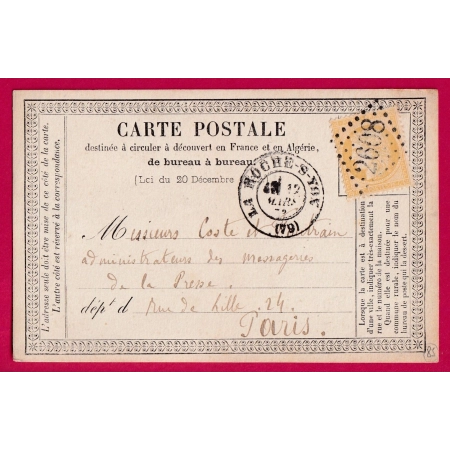 CARTE POSTALE
destinée à circuler à découvert en France et en Algérie,
de bureau à bureau
(Loi du 20 Décembre
LA ROCHE-S-YON
12
MARS
(79)
2608
Messieurs Coste et
administrateurs des messageries
de la Presse.
dépt d rue de Lille. 24.
Paris.
L'adresse seule doit être mise de ce côté de la carte.
L'autre côté est réservé à la correspondance.
Lorsque la carte est à destination
d'une ville, indiquer très-exactement la
rue et le numéro de la maison.
Quand elle est destinée pour une
commune rurale, indiquer le nom du
bureau de poste qui la dessert.